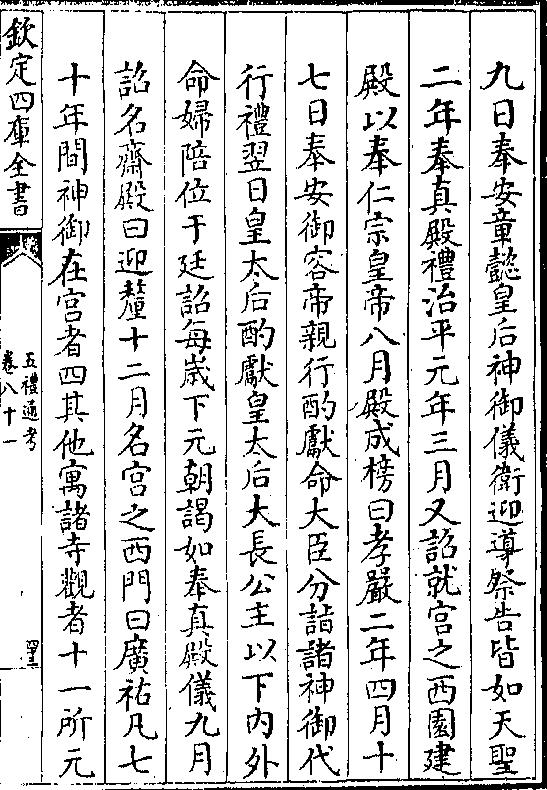 九日奉安章懿皇后神御儀衛迎導祭告皆如天聖
二年奉真殿禮治平元年三月又詔就宫之西園建
殿以奉仁宗皇帝八月殿成榜曰孝嚴二年四月十
七日奉安御容帝親行酌獻命大臣分詣諸神御代
行禮翌日皇太后酌獻皇太后大長公主以下内外
命婦陪位于廷詔每歳下元朝謁如奉真殿儀九月
詔名齋殿曰迎釐十二月名宫之西門曰廣祐凡七
十年間神御在宫者四其他寓諸寺觀者十一所元
欽定四庫全書
五禮通考
卷八十一